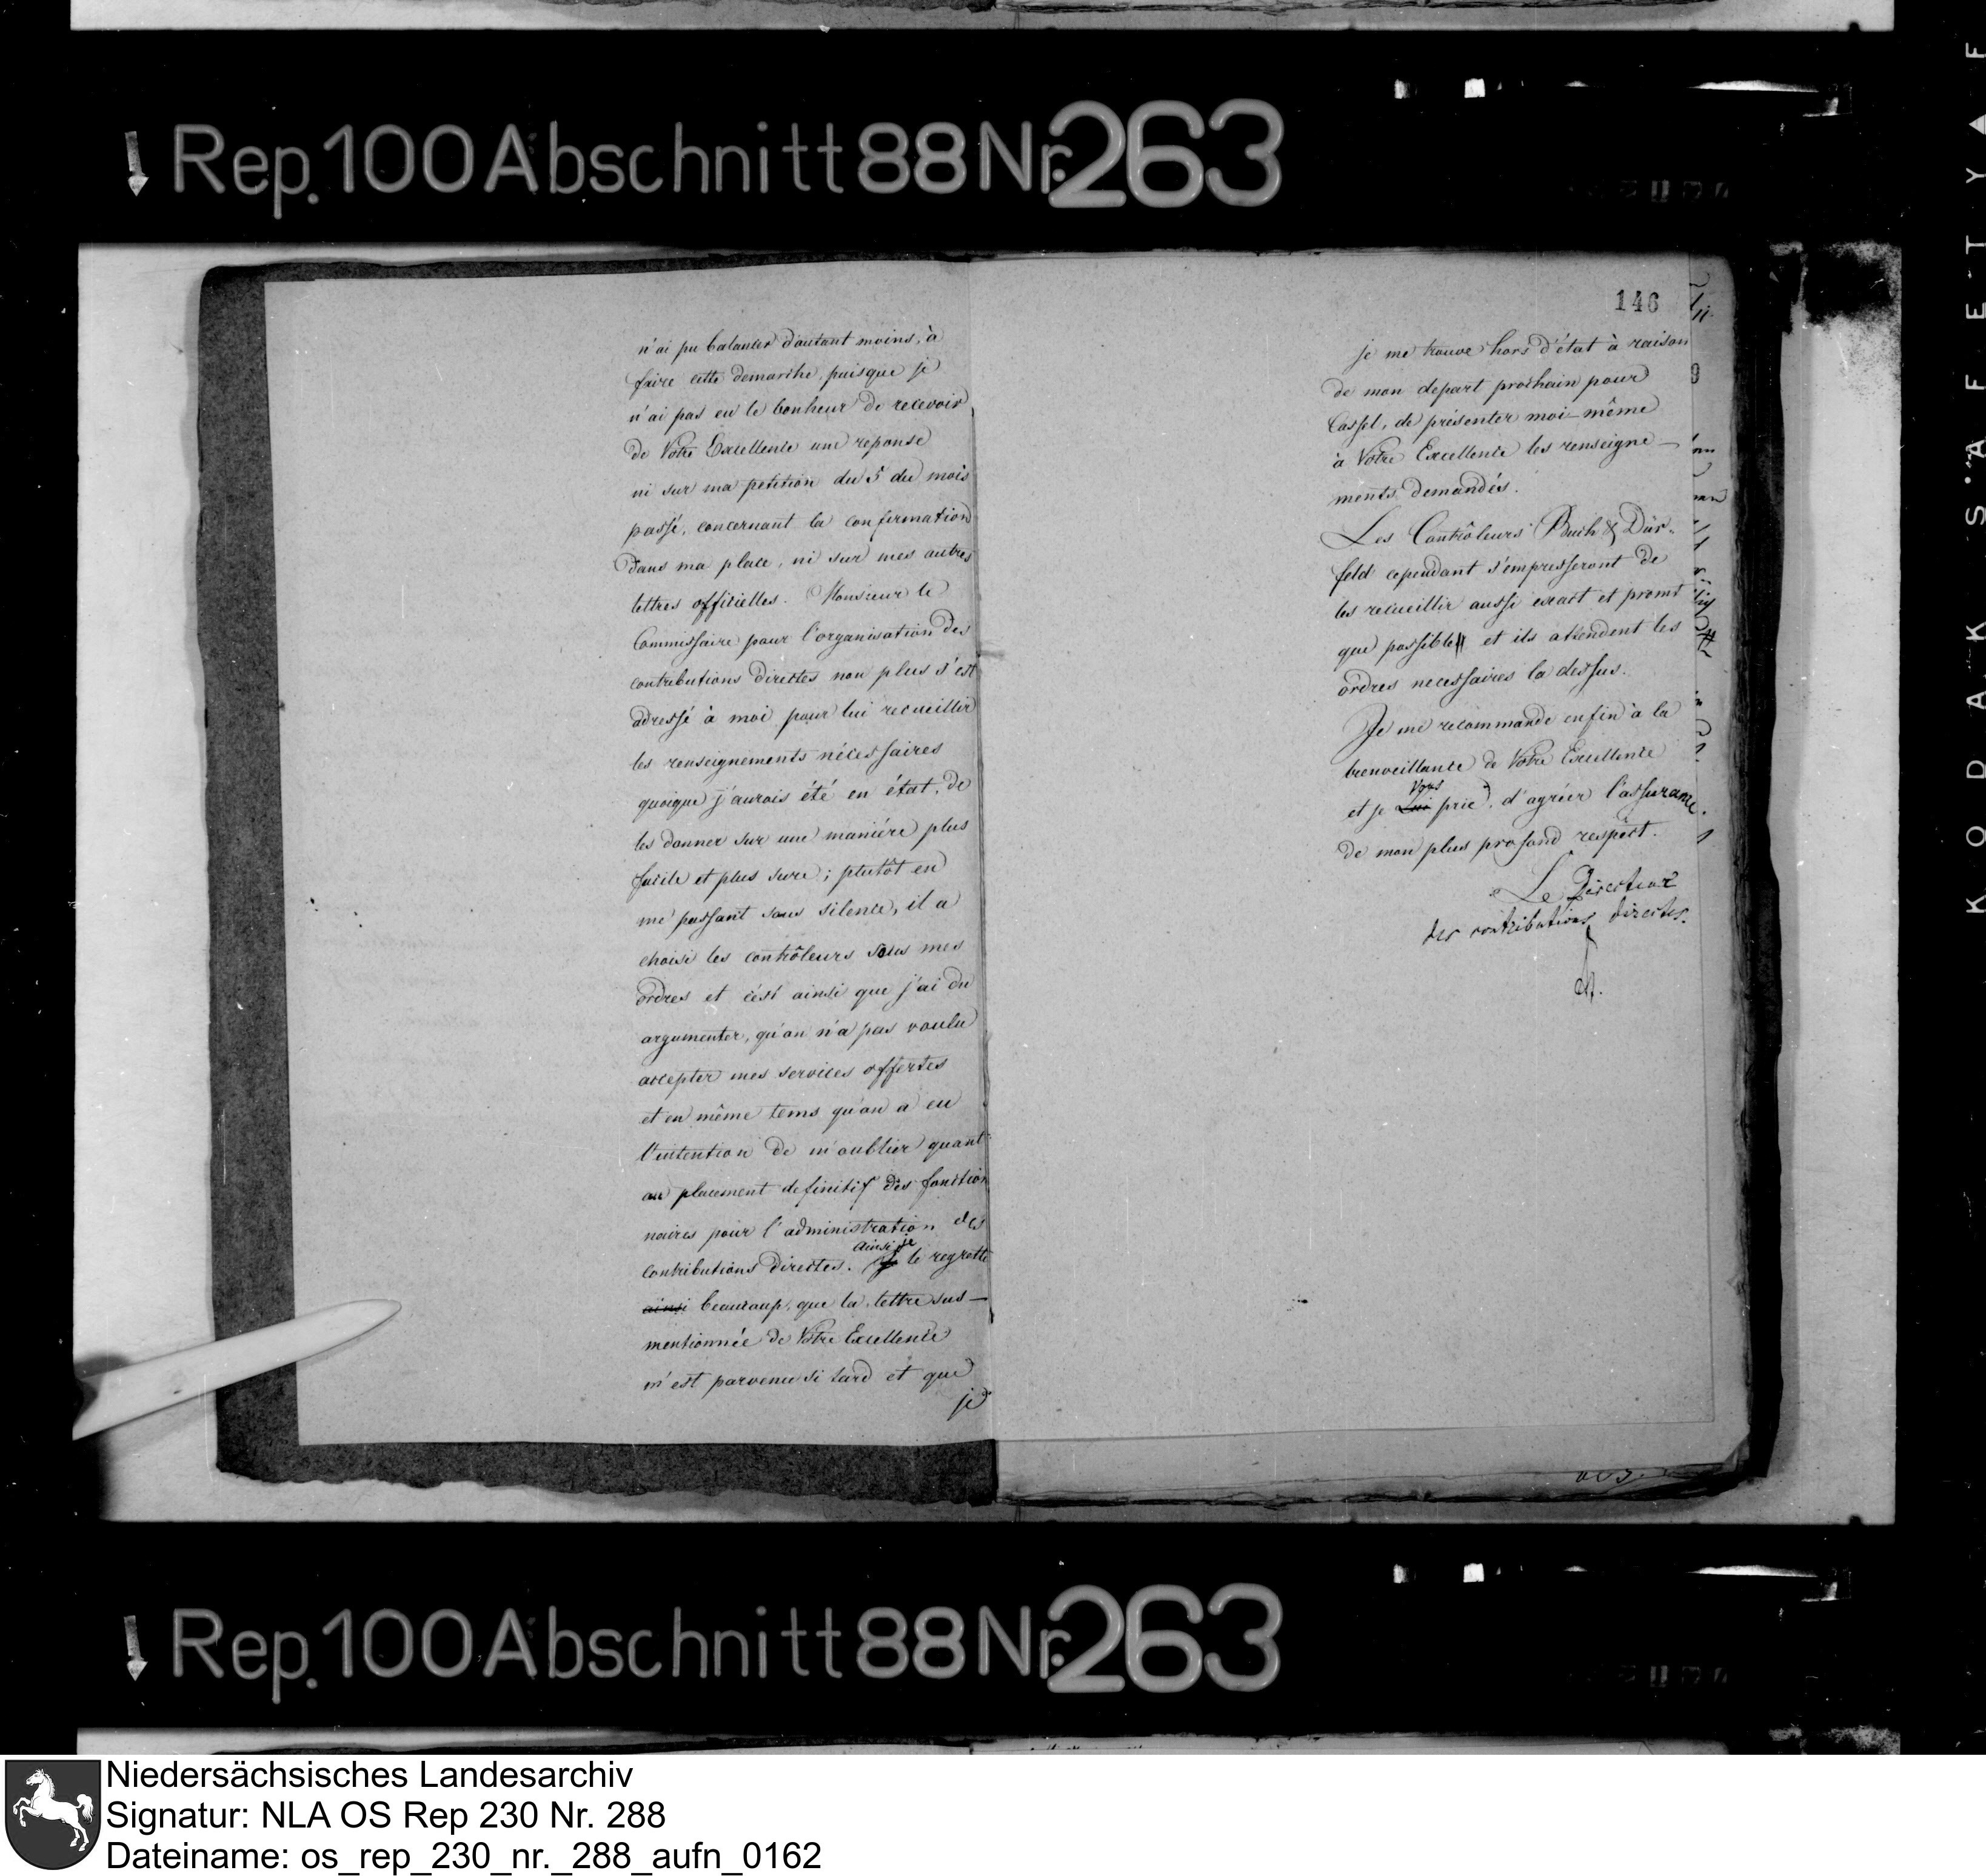 Rep. 100 Abschnitt 88 Nr. 263
n'ai pu balancer d'autant moins, à
faire cette demarche, puisque je
n'ai pas eu le bonheur de recevoir
de Votre Excellence une reponse
ni sur ma petition du 5 du mois
passé, concernant la confirmation
dans ma place, ni sur mes autres
lettres officielles. Monsieur le
Commissaire pour l'organisation des
contributions directes non plus s'est
adressé à moi pour lui recueillir
les renseignements nécessaires
quoique j'aurois été en état, de
les donner sur une maniére plus
facile et plus sure; plutôt en
me passant sous silence, il a
choisi les contrôleurs sous mes
ordres et c'est ainsi que j'ai du
argumenter, qu'on n'a pas voulu
accepter mes services offertes
et en même tems qu'on a eu
l'intention de m'oublier quant
au placement definitif des fonction
naires pour l'administration des
ainsi je
contributions directes. Je le regrette
ainsi beaucoup, que la lettre sus-
mentionnée de Votre Excellence
m'est parvenu si tard et que
je
146
je me trouve hors d'état à raison
de mon depart prochain pour
Cassel, de présenter moi-même
à Votre Excellence les renseigne-
ments demandés.
Les Contrôleurs Buch & Dür-
feld cependant s'empresseront de
les recueillir aussi exact et promt
que possible et ils attendent les
ordres necessaires la dessus.
Je me recommande enfin à la
bienveillance de Votre Excellence
Vous
et je Lui prie, d'agréer l'assurance
de mon plus profond respect.
Le Directeur
des contributions directes.
Rep. 100 Abschnitt 88 Nr. 263
KODAK SAFETY F
Niedersächsisches Landesarchiv
Signatur: NLA OS Rep 230 Nr. 288
Dateiname: os_rep_230_nr._288_aufn_0162